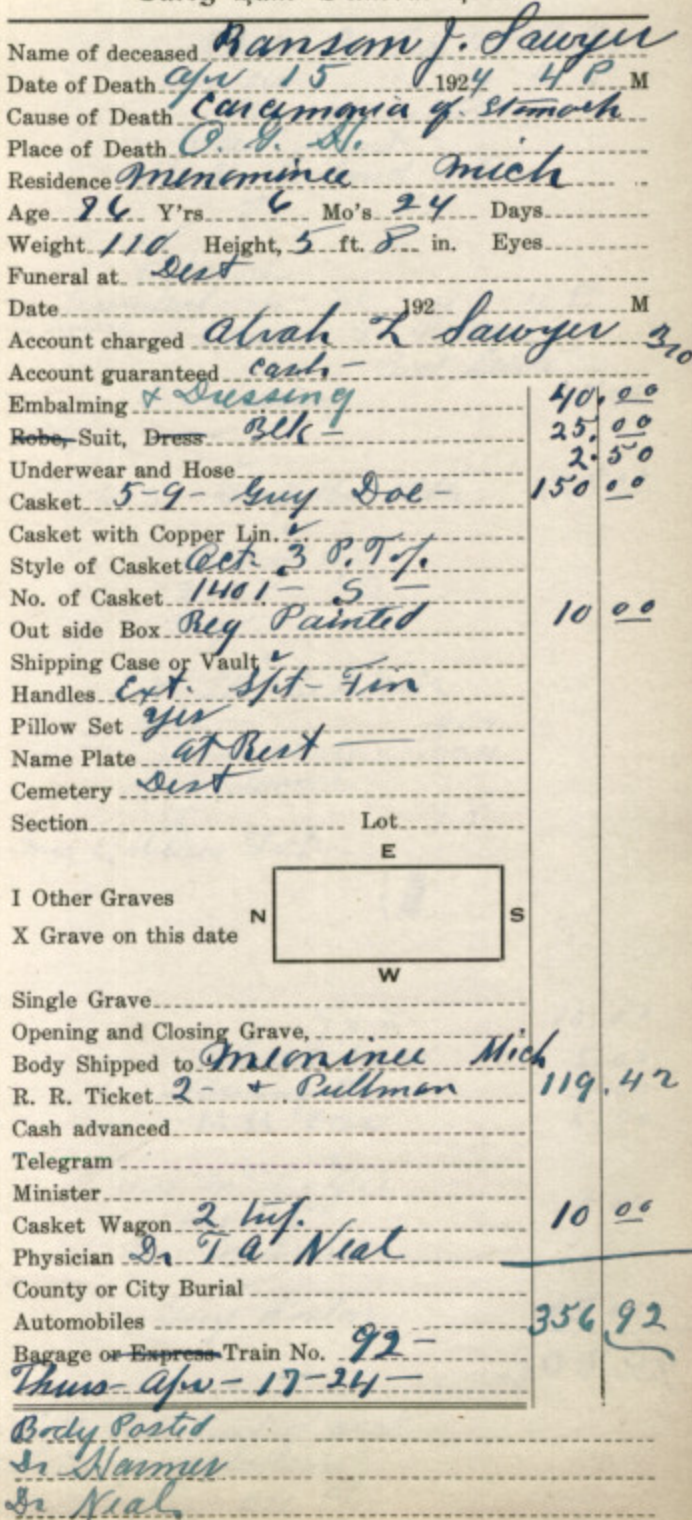 Name of deceased Ransom J. Sawyer
Date of Death Apr 15 1924 4 P M
Cause of Death Carcinomia of Stomach
Place of Death
Residence Menominee Mich
Age 86 Y'rs 6 Mo's 24 Days
Weight 110 Height, 5 ft. 8 in. Eyes
Funeral at Dest
Date 192 M
Account charged Alvah L Sawyer
Account guaranteed Cash -
Embalming & Dressing 40.00
Robe, Suit, Dress Blk - 25.00
Underwear and Hose 2.50
Casket 5-9- Guy Doe - 150 00
Casket with Copper Lin. ✓
Style of Casket Oct. 3 P. Top.
No. of Casket 1401 - S -
Out side Box Reg Painted 10 00
Shipping Case or Vault ✓
Handles Ext. Spt - Tin
Pillow Set yes
Name Plate At Rest
Cemetery Dest
Section Lot
E
I Other Graves
N S
X Grave on this date
W
Single Grave
Opening and Closing Grave,
Body Shipped to Meoninee Mich
R. R. Ticket 2 - & Pullman 119.42
Cash advanced
Telegram
Minister
Casket Wagon 2 10 00
Physician Dr T A Neal
County or City Burial
Automobiles 356 92
Bagage or Express Train No. 92 -
Thurs - Apr - 17 - 24 -
Body Posted
Dr Harmer
Dr Neal